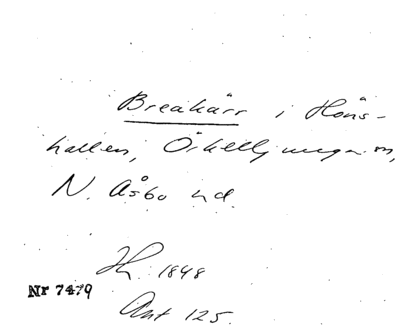 Breakärr i Höns-
hallen, Örkelljunga sn,
N. Åsbo hd.
Hk. 1848
Nr 7479
Ant 125.